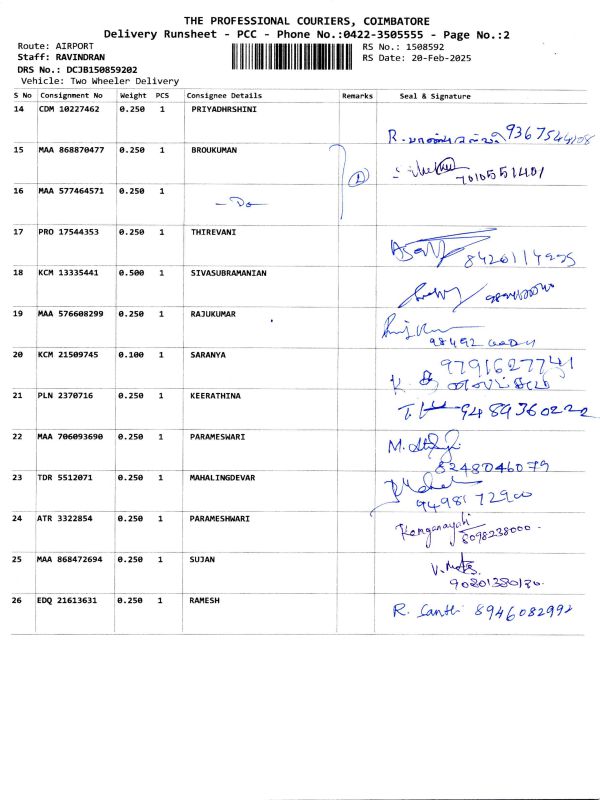 THE PROFESSIONAL COURIERS, COIMBATORE
Delivery Runsheet - PCC - Phone No.:0422-3505555 - Page No.:2
Route: AIRPORT RS No.: 1508592
Staff: RAVINDRAN RS Date: 20-Feb-2025
DRS No.: DCJB150859202
Vehicle: Two Wheeler Delivery
S No Consignment No Weight PCS Consignee Details Remarks Seal & Signature
14 CDM 10227462 0.250 1 PRIYADHRSHINI
R. 9367544108
15 MAA 868870477 0.250 1 BROUKUMAN
7010551401
16 MAA 577464571 0.250 1
- Do -
17 PRO 17544353 0.250 1 THIREVANI
18 KCM 13335441 0.500 1 SIVASUBRAMANIAN
19 MAA 576608299 0.250 1 RAJUKUMAR
20 KCM 21509745 0.100 1 SARANYA
9791627741
K.
21 PLN 2370716 0.250 1 KEERATHINA
9489360222
22 MAA 706093690 0.250 1 PARAMESWARI
M.
8248046079
23 TDR 5512071 0.250 1 MAHALINGDEVAR
9498172900
24 ATR 3322854 0.250 1 PARAMESHWARI
Kanganayaki
8098238000
25 MAA 868472694 0.250 1 SUJAN
V.
26 EDQ 21613631 0.250 1 RAMESH
R. Santhi 8946082992